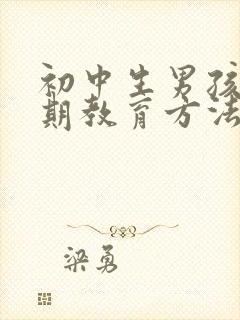 初中生男孩
期教育方法
梁勇